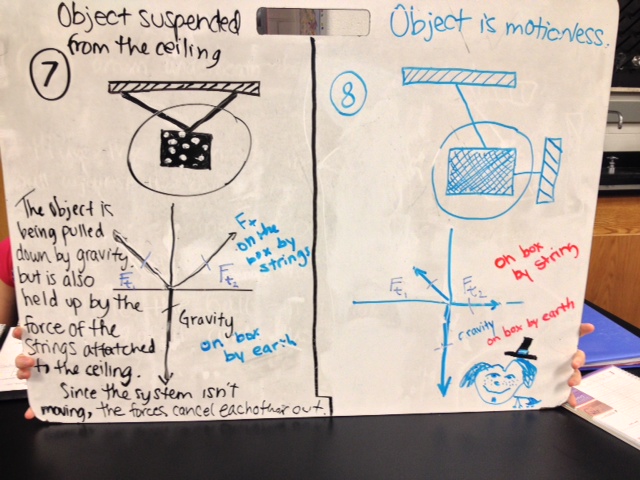 Object suspended
from the ceiling
7
The Object is
being pulled
down by gravity.
but is also
held up by the
force of the
Strings attatched
to the ceiling.
Since the system isn't
moving, the forces cancel eachother out.
Ft1
Ft2
Fx
on the
box by
strings
Gravity
on box
by earth
Object is motionness.
8
Ft1
Ft2
on box
by string
Gravity
on box by earth